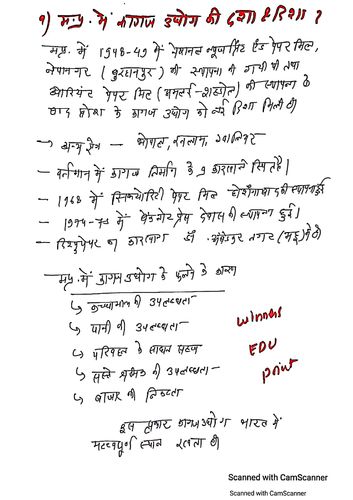 १) म.प्र. में कागज उद्योग की दशा व दिशा ?
म.प्र. में 1948-49 में नेशनल न्यूज प्रिंट एंड पेपर मिल,
नेपानगर (बुरहानपुर) की स्थापना की गयी थी तथा
ओरियंट पेपर मिल (अमलाई-शहडोल) की स्थापना के
बाद प्रदेश के कागज उद्योग को नई दिशा मिली थी
- अन्य क्षेत्र - भोपाल, रतलाम, ग्वालियर
- वर्तमान में कागज निर्माण के 9 कारखाने स्थित है।
- 1968 में सिक्योरिटी पेपर मिल होशंगाबाद की स्थापना हुई
- 1974-75 में बैंकनोट प्रेस देवास की स्थापना हुई।
- टिश्यूपेपर का कारखाना डॉ. अंबेडकर नगर (महू) में है
म.प्र. में कागज उद्योग के के कारण
↳ कच्चामाल की उपलब्धता
↳ पानी की उपलब्धता
↳ परिवहन के साधन सहज
↳ सस्ते श्रमिक की उपलब्धता -
↳ बाजार की निकटता
winners
EDU
print
इस प्रकार कागज उद्योग भारत में
महत्वपूर्ण स्थान रखता है
Scanned with CamScanner
Scanned with CamScanner